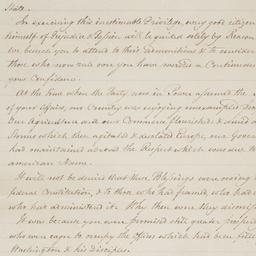 State.
In exercising this inestimable Privilege, every good citizen
himself of Prejudice & Passion will be guided solely by Reason
we beseech you to attend to their admonitions & to consider
those who now rule over you have merited a Continuance
your Confidence.
At the time when the Party now in Power assumed the
of your Affairs, our Country was enjoying unexampled
Our Agriculture and our Commerce flourished &
Storms which then agitated & desolated Europe, our Gover
had maintained abroad the Respect which was due to
american Name.
It will not be denied that these Blessings were owing
federal Constitution, & to those who had framed, who had
who had administered it. Why then were they dismissed
It was because you were promised still greater prosper
who were eager to occupy the offices which had been fille
Washington & his disciples.